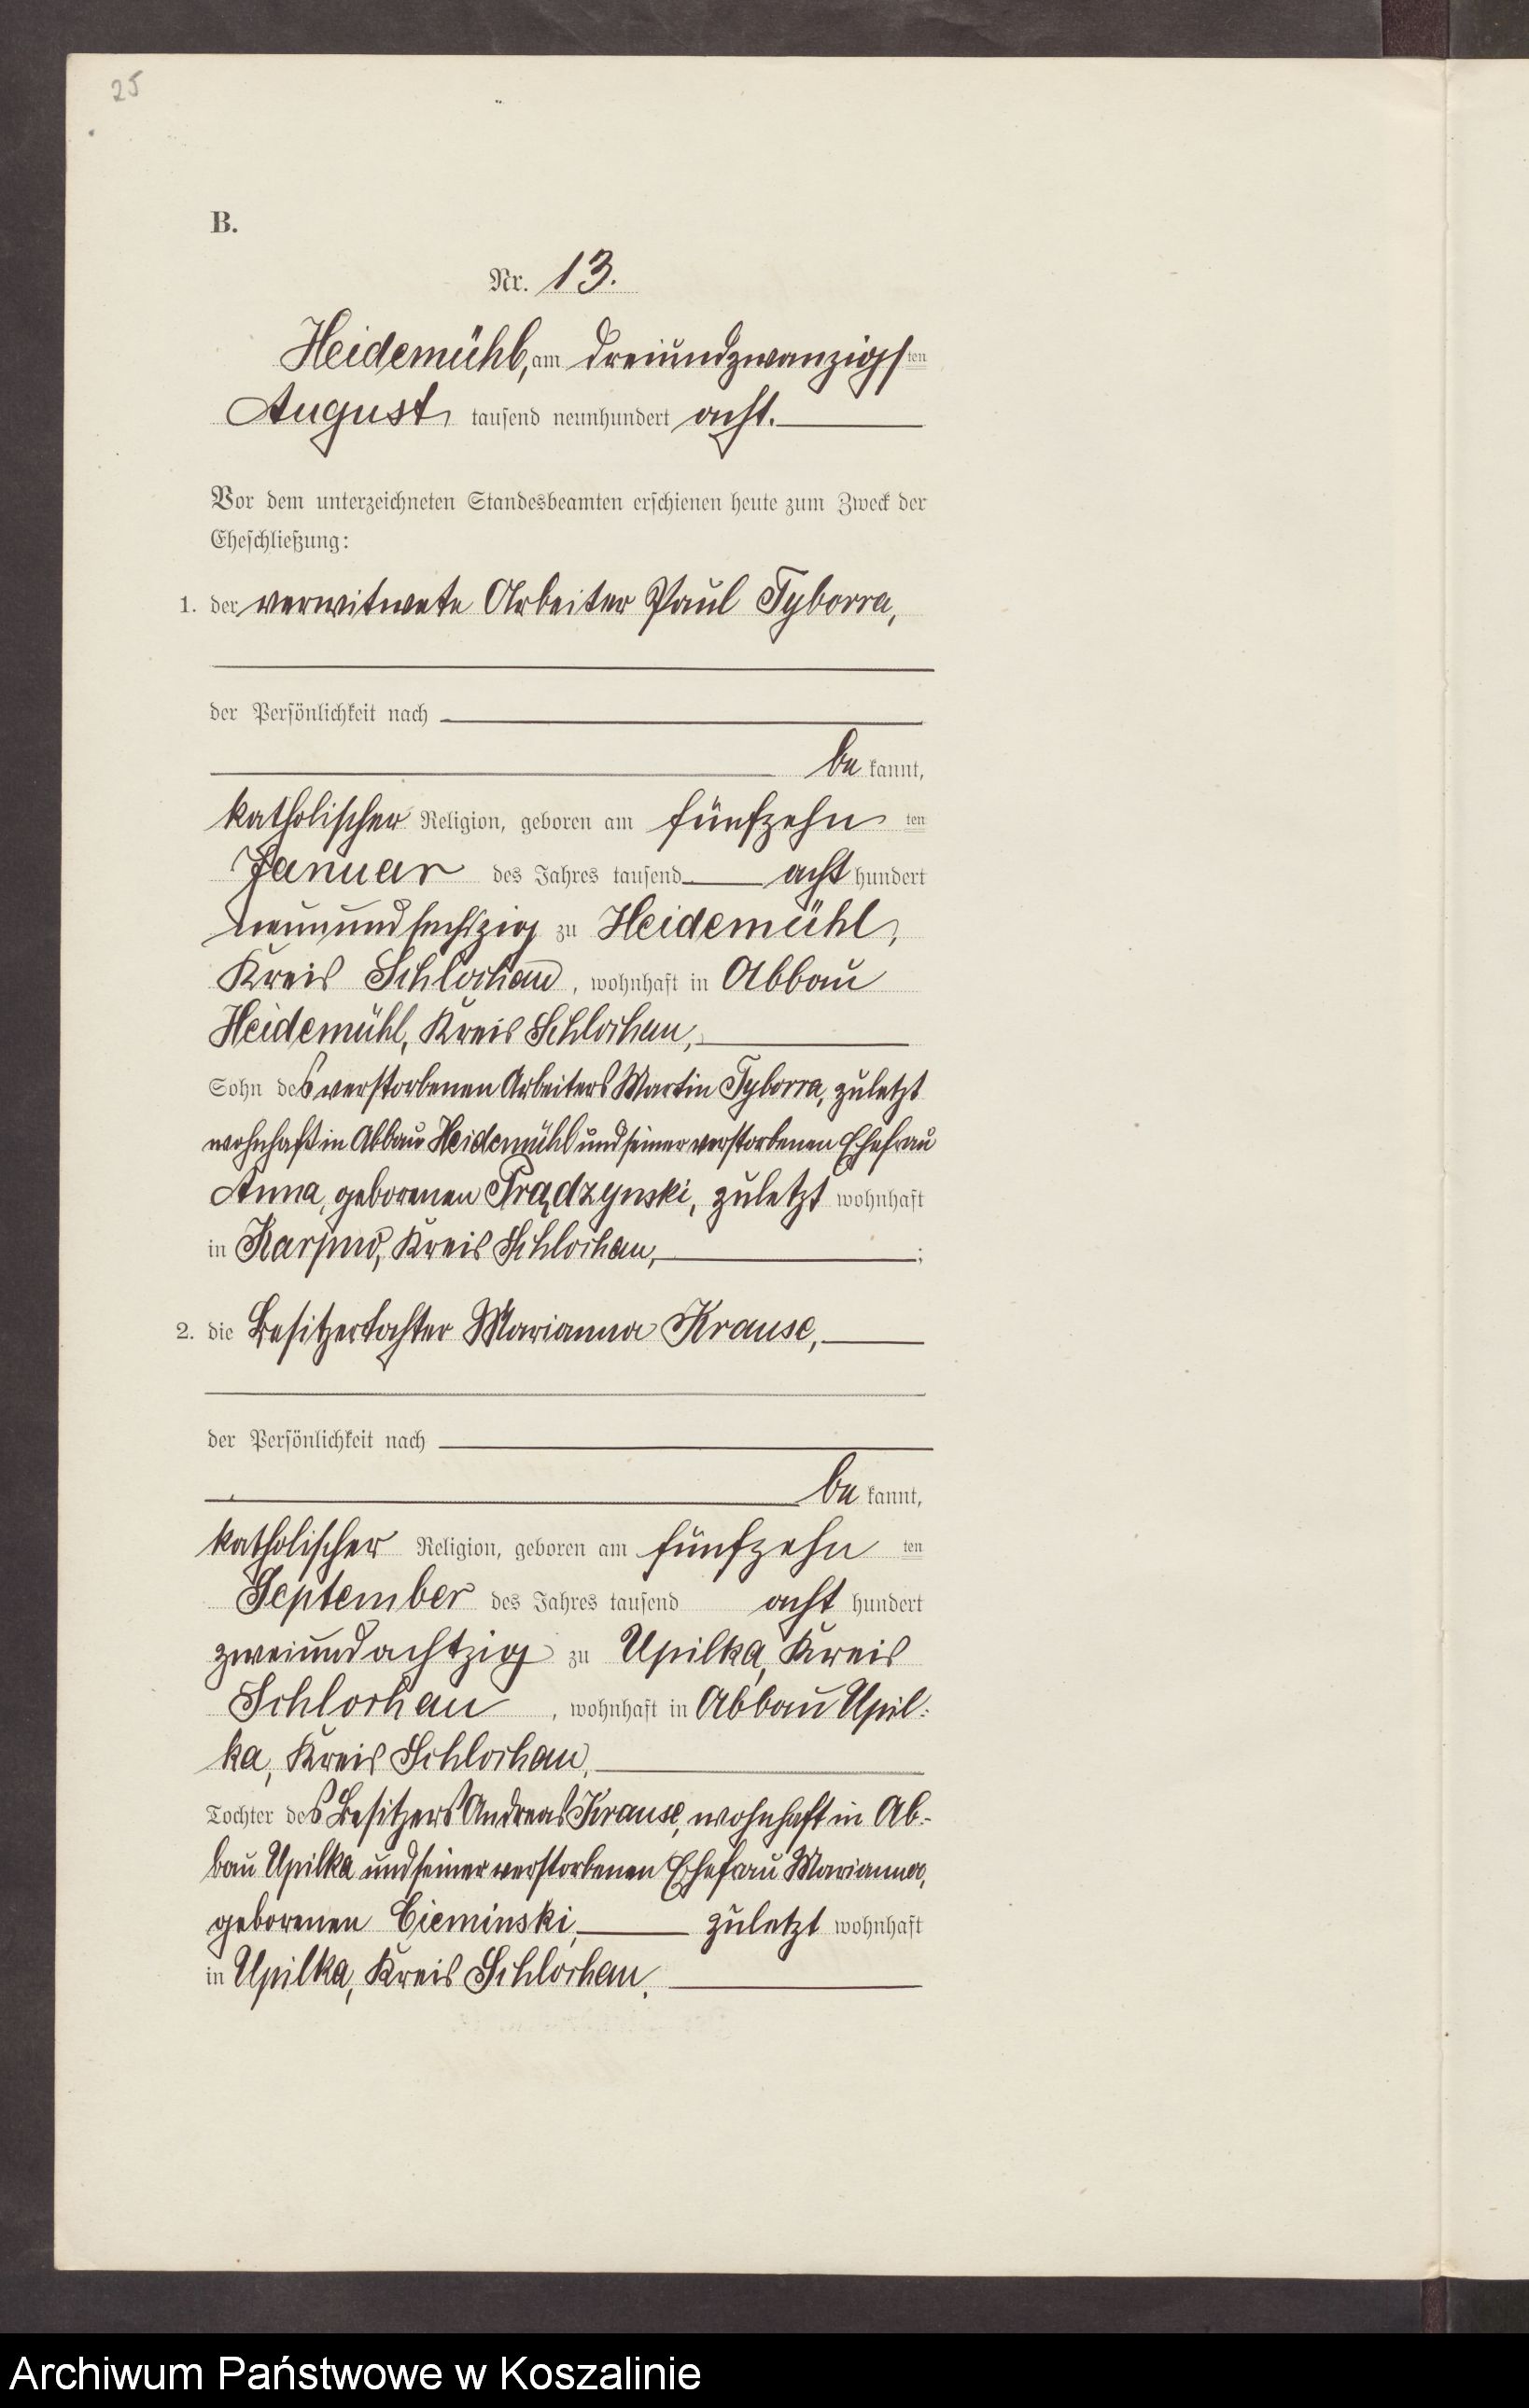 25
B.
Nr. 13.
Heidemühl, am dreiundzwanzigsten
August tausend neunhundert acht.
Vor dem unterzeichneten Standesbeamten erschienen heute zum Zweck der
Eheschließung:
1. der verwitwete Arbeiter Paul Tyborra,
der Persönlichkeit nach
be kannt,
katholischer Religion, geboren am fünfzehn ten
Januar des Jahres tausend acht hundert
neunundsechszig zu Heidemühl,
Kreis Schlochau, wohnhaft in Abbau
Heidemühl, Kreis Schlochau,
Sohn des verstorbenen Arbeiters Martin Tyborra, zuletzt
wohnhaft in Abbau Heidemühl und seiner verstorbenen Ehefrau
Anna, geborenen Prądzynski, zuletzt wohnhaft
in Karpno, Kreis Schlochau, ;
2. die Besitzertochter Marianna Krause,
der Persönlichkeit nach
be kannt,
katholischer Religion, geboren am fünfzehn ten
September des Jahres tausend acht hundert
zweiundachtzig zu Upilka, Kreis
Schlochau, wohnhaft in Abbau Upil-
ka, Kreis Schlochau,
Tochter des Besitzers Andreas Krause, wohnhaft in Ab-
bau Upilka und seiner verstorbenen Ehefrau Marianna,
geborenen Cieminski, zuletzt wohnhaft
in Upilka, Kreis Schlochau.
Archiwum Państwowe w Koszalinie